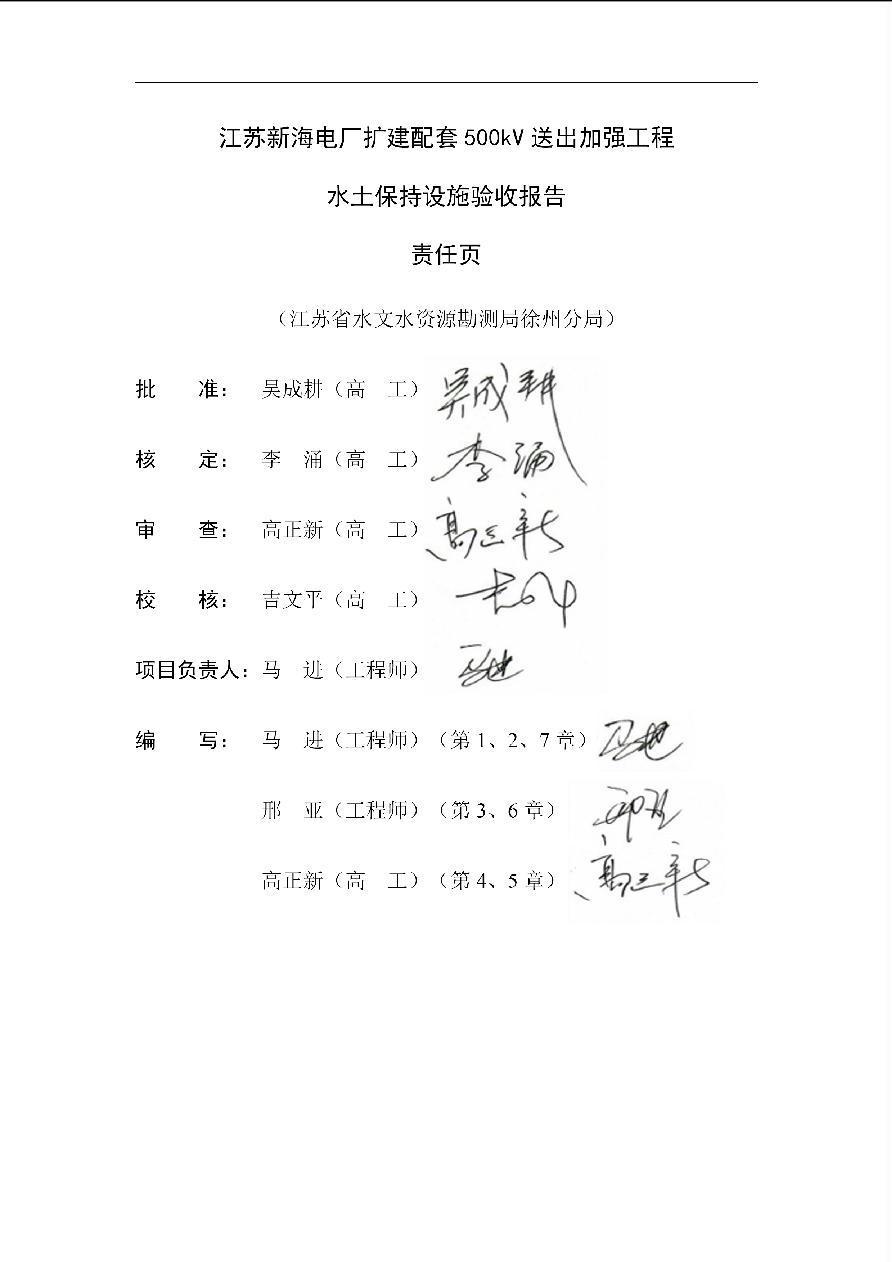 江苏新海电厂扩建配套 500kV 送出加强工程
水土保持设施验收报告
责任页
（江苏省水文水资源勘测局徐州分局）
批　　准：　吴成耕（高　工） 吴成耕
核　　定：　李　涌（高　工） 李涌
审　　查：　高正新（高　工） 高正新
校　　核：　吉文平（高　工） 吉文平
项目负责人：马　进（工程师） 马进
编　　写：　马　进（工程师）（第 1、2、7 章） 马进
邢　亚（工程师）（第 3、6 章） 邢亚
高正新（高　工）（第 4、5 章） 高正新